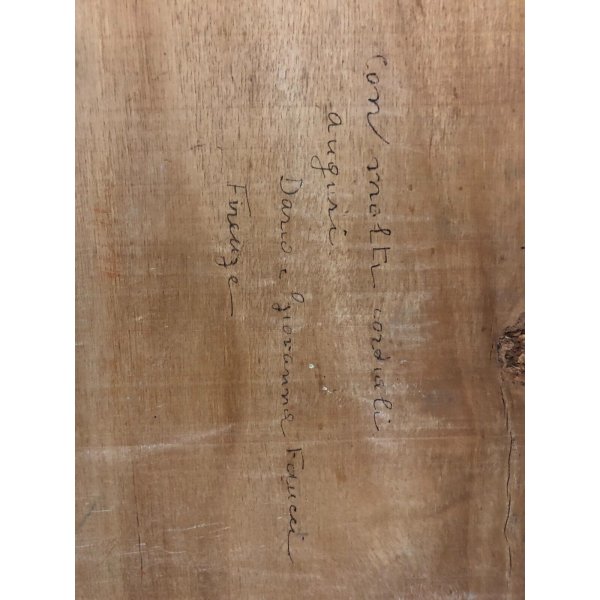 Con molti cordiali
auguri
Dario e Giovanna Faucci
Firenze